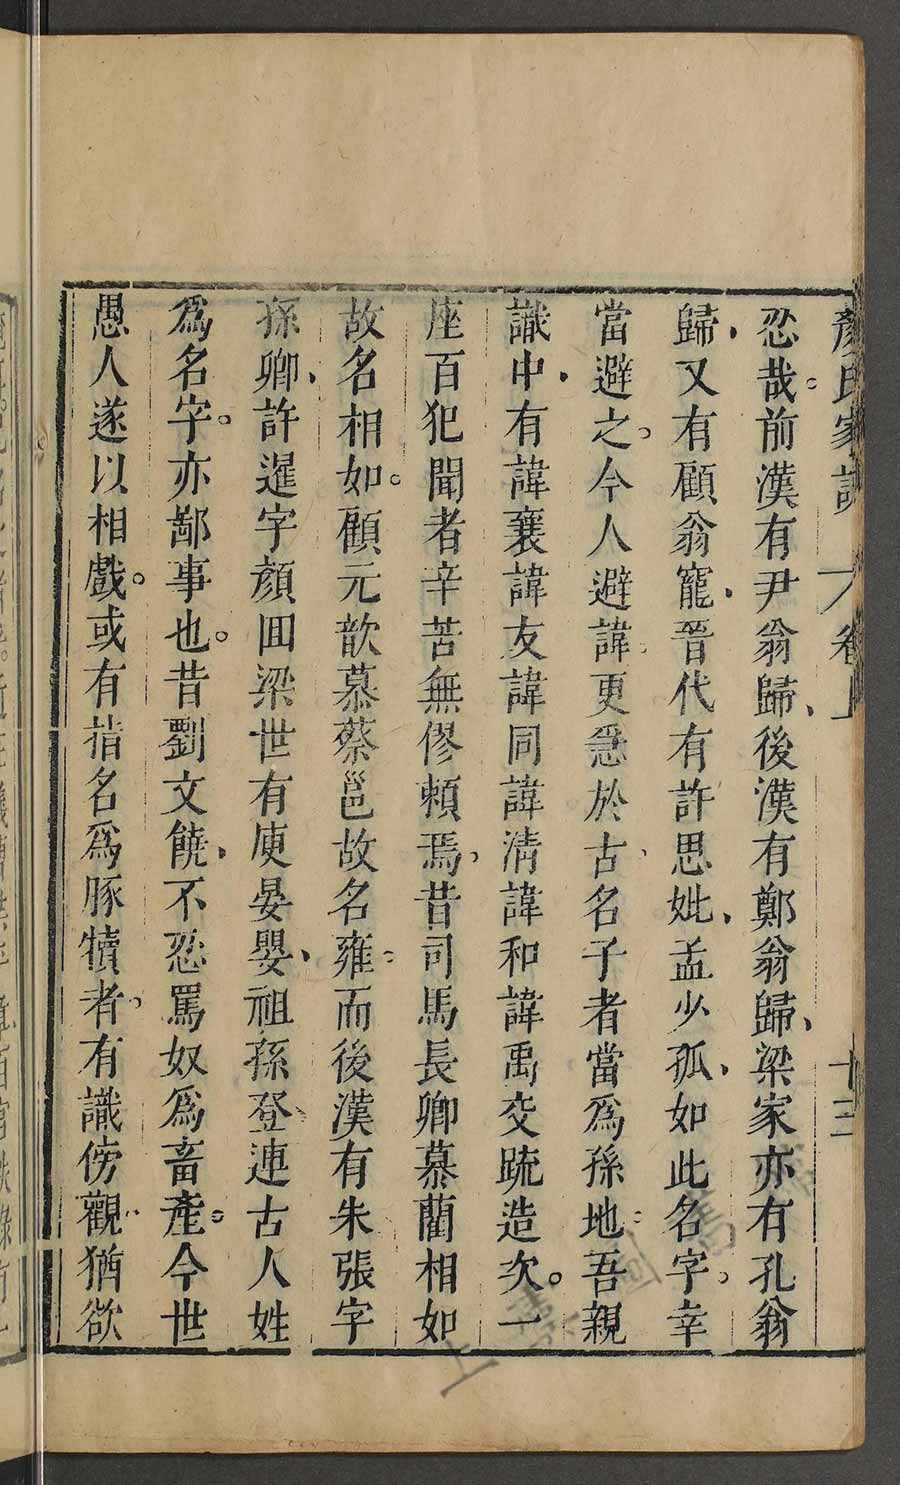 顏氏家訓 卷上 十三
忍哉。前漢有尹翁歸、後漢有鄭翁歸、梁家亦有孔翁
歸、又有顧翁寵、晉代有許思妣、孟少孤、如此名字。幸
當避之。今人避諱。更急於古、名子者當爲孫地。吾親
識中、有諱襄諱友諱同諱清諱和諱禹交䟽造次。一
座百犯聞者辛苦無憀賴焉、昔司馬長卿慕藺相如
故名相如。顧元歎慕蔡邕故名雍。而後漢有朱張字
孫卿、許暹字顏回梁世有庾晏嬰、祖孫登、連古人姓
爲名字。亦鄙事也。昔劉文饒、不忍罵奴爲畜產。今世
愚人遂以相戲。或有指名爲豚犢者。有識傍觀、猶欲